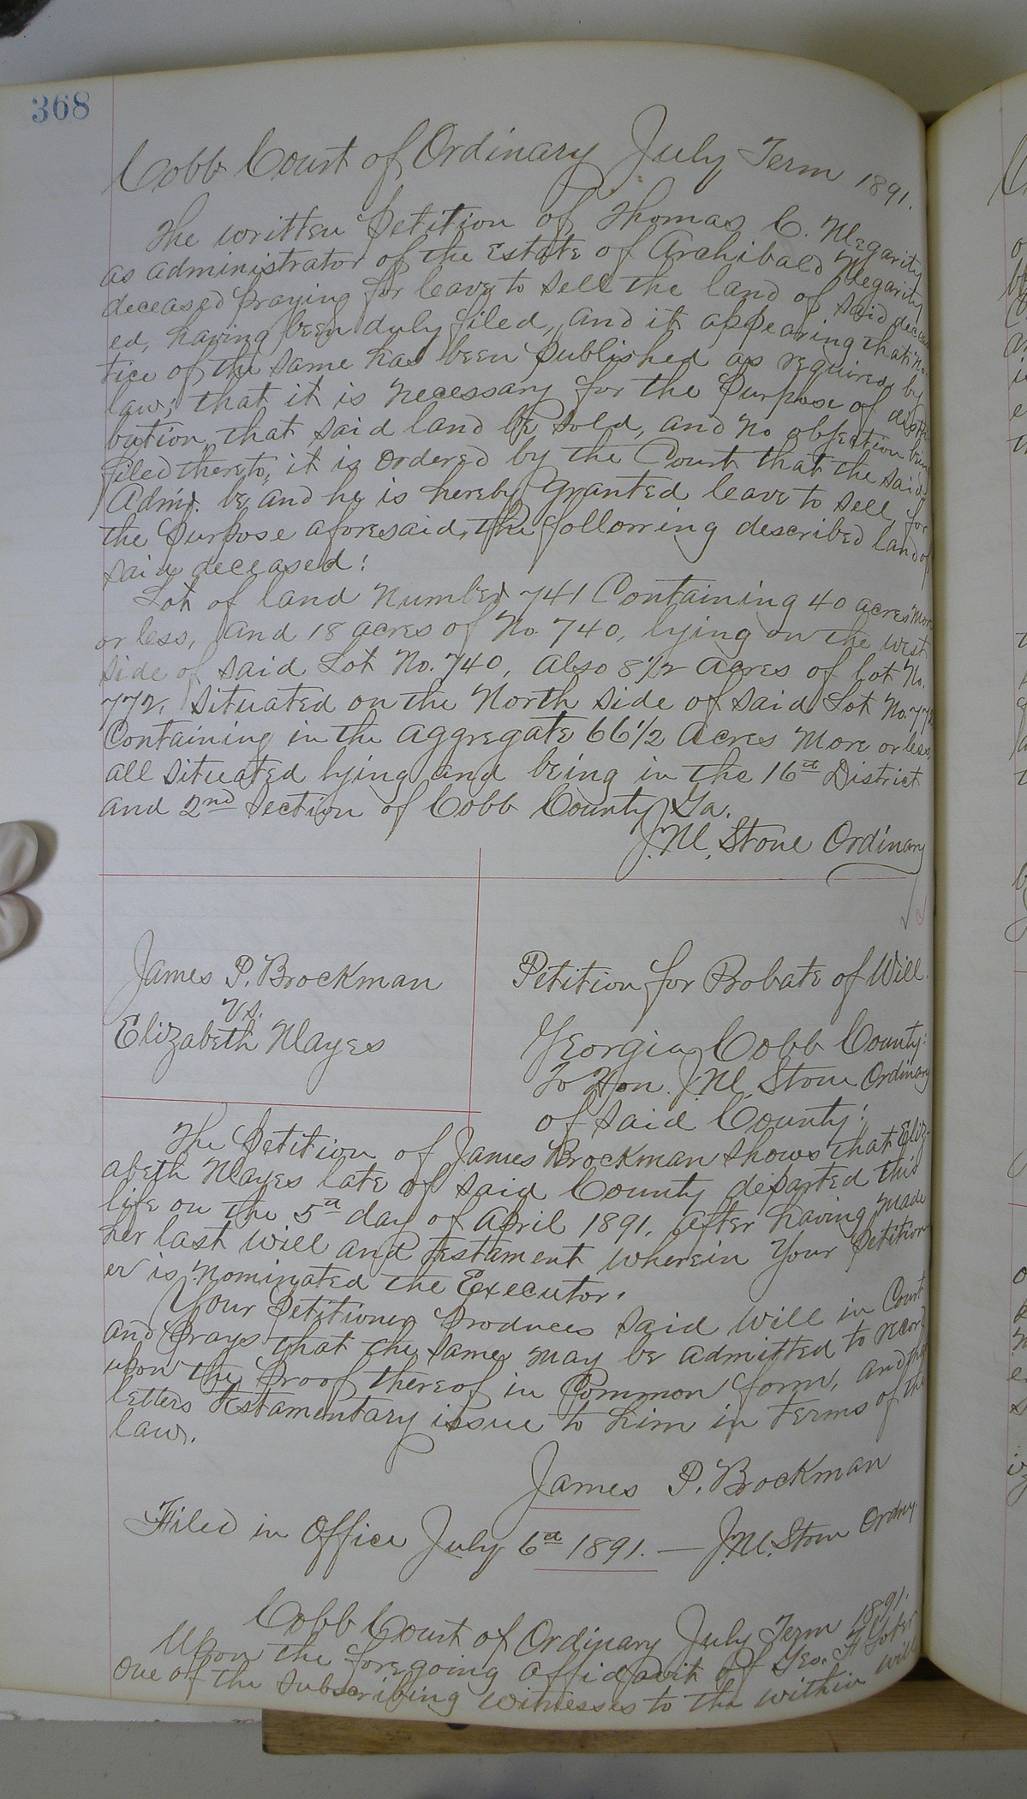 368
Cobb Court of Ordinary July Term 1891.
The written Petition of Thomas C. Megarity
as administrator of the Estate of Archibald Megarity
deceased Praying for leave to sell the land of said deceas
ed, having been duly filed, and it appearing that no
tice of the same has been Published as required by
law, that it is necessary for the Purpose of distri
bution, that said land be sold, and no objection being
filed thereto, it is ordered by the Court that the said
Admr. be and he is hereby granted leave to sell for
the Purpose aforesaid, the following described land of
said deceased:
Lot of land Number 741 Containing 40 acres more
or less, and 18 acres of No. 740, lying on the west
side of said Lot No. 740, also 8½ acres of Lot No.
772, situated on the North side of said Lot No. 772
Containing in the aggregate 66½ acres more or less,
all situated lying and being in the 16th District
and 2nd Section of Cobb County Ga.
J.M. Stone Ordinary
James P. Brockman
vs.
Elizabeth Mayes
Petition for Probate of Will.
Georgia Cobb County:
To Hon. J.M. Stone Ordinary
of said County:
The Petition of James Brockman shows that Eliz-
abeth Mayes late of said County departed this
life on the 5th day of April 1891, after having made
her last will and testament wherein your Petition
er is nominated the Executor.
Your Petitioner Produces said will in Court
and Prays that the same may be admitted to record
upon the Proof thereof in Common form, and that
letters testamentary issue to him in terms of the
law.
James P. Brockman
Filed in Office July 6th 1891. — J.M. Stone Ordny
Cobb Court of Ordinary July Term 1891.
Upon the foregoing affidavit of Geo. F.
one of the subscribing witnesses to the within will